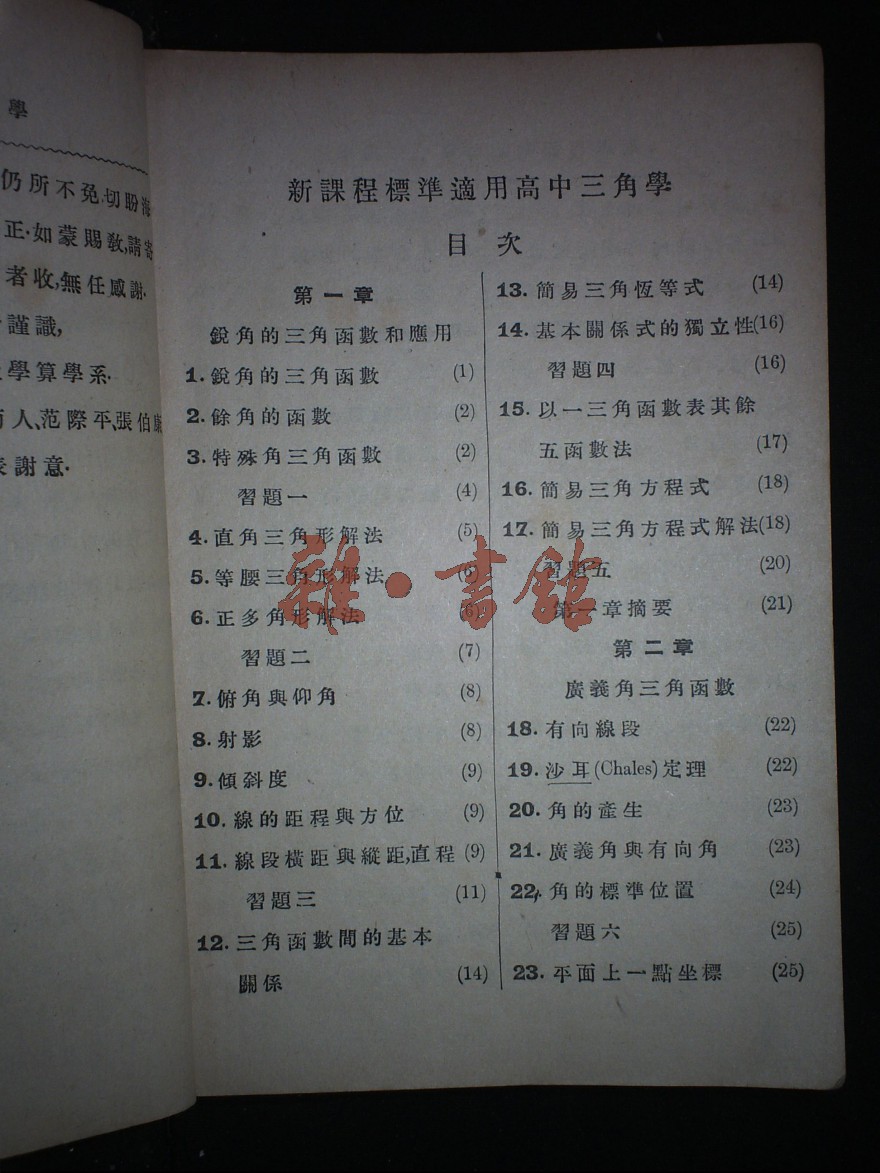 學
仍所不免,切盼海
正.如蒙賜教,請寄
者收,無任感謝.
謹識,
學算學系.
人、范際平、張伯康
謝意.
新課程標準適用高中三角學
目次
第一章
銳角的三角函數和應用
1.銳角的三角函數 (1)
2.餘角的函數 (2)
3.特殊角三角函數 (2)
習題一 (4)
4.直角三角形解法 (5)
5.等腰三角形解法 (6)
6.正多角形解法 (6)
習題二 (7)
7.俯角與仰角 (8)
8.射影 (8)
9.傾斜度 (9)
10.線的距程與方位 (9)
11.線段橫距與縱距,直程 (9)
習題三 (11)
12.三角函數間的基本
關係 (14)
13.簡易三角恆等式 (14)
14.基本關係式的獨立性(16)
習題四 (16)
15.以一三角函數表其餘
五函數法 (17)
16.簡易三角方程式 (18)
17.簡易三角方程式解法(18)
習題五 (20)
第一章摘要 (21)
第二章
廣義角三角函數
18.有向線段 (22)
19.沙耳(Chales)定理 (22)
20.角的產生 (23)
21.廣義角與有向角 (23)
22.角的標準位置 (24)
習題六 (25)
23.平面上一點坐標 (25)
雜·書館